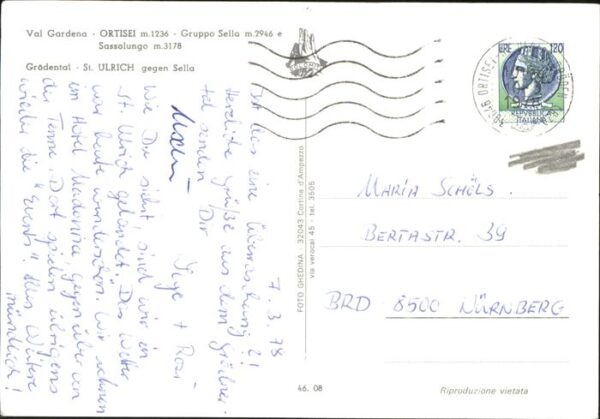 Val Gardena - ORTISEI m.1236 - Gruppo Sella m.2946 e
Sassolungo m.3178
Grödental - St. ULRICH gegen Sella
7.3.78
Ist das eine Überraschung?!
Herzliche Grüße aus dem Grödner-
tal senden Dir
Inge + Rosi
Wie Du siehst sind wir in
St. Ulrich gelandet. Das Wetter
war heute wunderschön. Wir wohnen
im Hotel Madonna gegenüber von
der Tenne. Dort spielen übrigens
wieder die "Events". Alles Weitere
mündlich!
FOTO GHEDINA - 32043 Cortina d'Ampezzo
via verocai 45 - tel. 3505
46. 08
LIRE 120
REPUBBLICA
ITALIANA
ORTISEI
1978
MARIA SCHÖLS
BERTASTR. 39
BRD 8500 NÜRNBERG
Riproduzione vietata